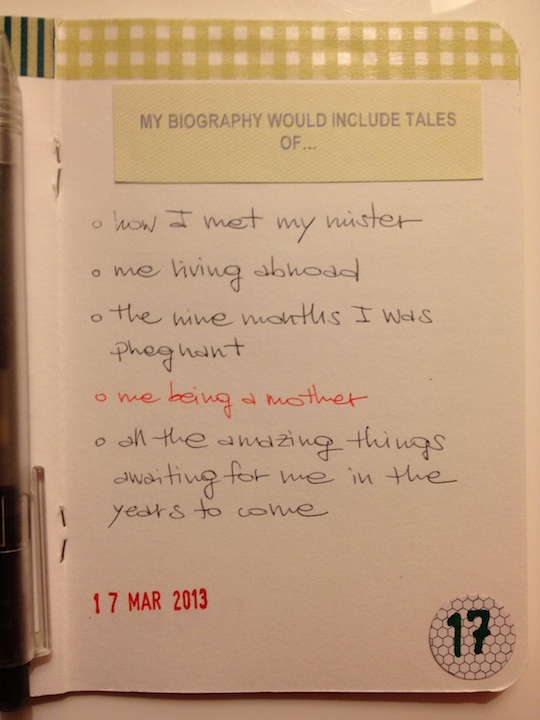 MY BIOGRAPHY WOULD INCLUDE TALES
OF...
how I met my mister
me living abroad
the nine months I was
pregnant
me being a mother
all the amazing things
awaiting for me in the
years to come
17 MAR 2013
17